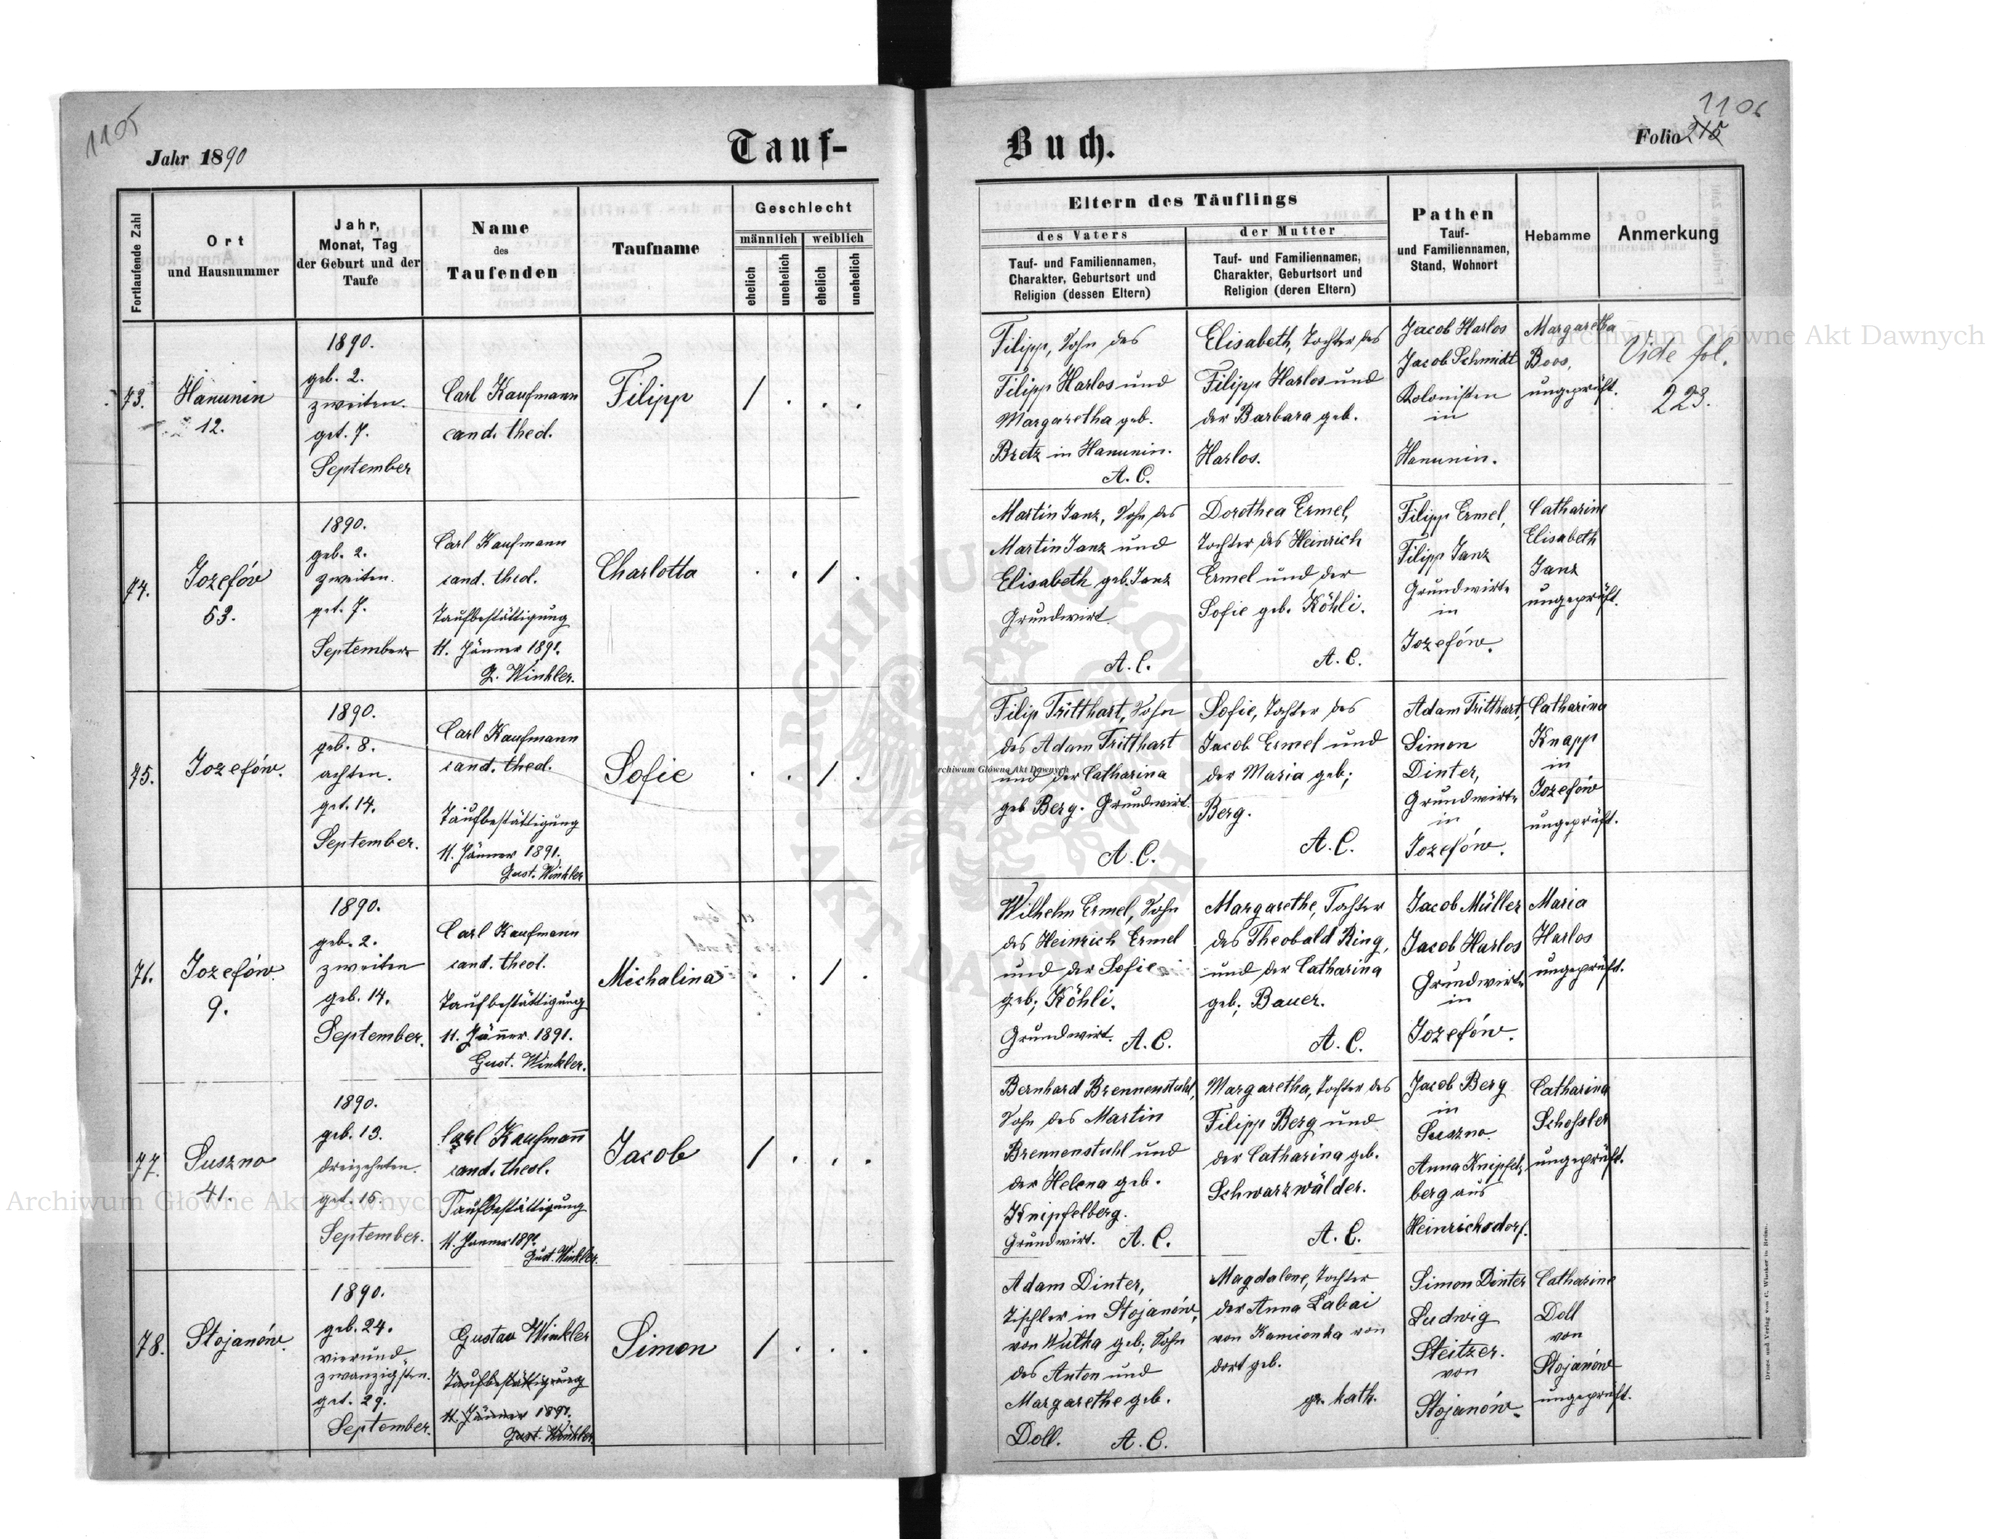 1105
1106
Jahr 1890
Tauf-
Buch.
Folio 215
Fortlaufende Zahl
Ort
und Hausnummer
Jahr,
Monat, Tag
der Geburt und der
Taufe
Name
des
Taufenden
Taufname
Geschlecht
männlich
weiblich
ehelich
unehelich
ehelich
unehelich
Eltern des Täuflings
des Vaters
der Mutter
Tauf- und Familiennamen,
Charakter, Geburtsort und
Religion (dessen Eltern)
Tauf- und Familiennamen,
Charakter, Geburtsort und
Religion (deren Eltern)
Pathen
Tauf-
und Familiennamen,
Stand, Wohnort
Hebamme
Anmerkung
73.
Hanunin
12.
1890.
geb. 2.
zweiten.
get. 7.
September
Carl Kaufmann
cand. theol.
Filipp
/ . . .
Filipp, Sohn des
Filipp Harlos und
Margaretha geb.
Bretz in Hanunin.
A. C.
Elisabeth, Tochter des
Filipp Harlos und
der Barbara geb.
Harlos.
Jacob Harlos
Jacob Schmidt
Kolonisten
in
Hanunin.
Margaretha
Boos,
ungeprüft.
Vide fol.
223.
74.
Jozefów
53.
1890.
geb. 2.
zweiten.
get. 7.
September
Carl Kaufmann
cand. theol.
Taufbestättigung
11. Jänner 1891.
G. Winkler.
Charlotta
. . / .
Martin Janz, Sohn des
Martin Janz und
Elisabeth geb. Janz
Grundwirt
A. C.
Dorothea Ermel,
Tochter des Heinrich
Ermel und der
Sofie geb. Köhli.
A. C.
Filipp Ermel,
Filipp Janz
Grundwirte
in
Jozefów.
Catharine
Elisabeth
Janz
ungeprüft.
75.
Jozefów.
1890.
geb. 8.
achten.
get. 14.
September.
Carl Kaufmann
cand. theol.
Taufbestättigung
11. Jänner 1891.
Gust. Winkler
Sofie
. . / .
Filip Tritthart, Sohn
des Adam Tritthart
und der Catharina
geb Berg. Grundwirt.
A. C.
Sofie, Tochter des
Jacob Ermel und
der Maria geb;
Berg.
A. C.
Adam Tritthart,
Simon
Dinter,
Grundwirte
in
Jozefów.
Catharina
Knapp
in
Jozefów
ungeprüft.
76.
Jozefów.
9.
1890.
geb. 2.
zweiten
geb. 14.
September.
Carl Kaufmann
cand. theol.
Taufbestättigung
11. Jänner 1891.
Gust. Winkler.
Michalina
. . / .
Wilhelm Ermel, Sohn
des Heinrich Ermel
und der Sofie
geb; Köhli.
Grundwirt. A. C.
Margarethe, Tochter
des Theobald Ring,
und der Catharina
geb; Bauer.
A. C.
Jacob Müller
Jacob Harlos
Grundwirte
in
Jozefów.
Maria
Harlos
ungeprüft.
77.
Suszno
41.
1890.
geb. 13.
dreizehnten.
get. 15.
September.
Carl Kaufmann
cand. theol.
Taufbestättigung
11. Jänner 1891.
Gust. Winkler.
Jacob
/ . . .
Bernhard Brennenstuhl,
Sohn des Martin
Brennenstuhl und
der Helena geb.
Knipfelberg.
Grundwirt. A. C.
Margaretha, Tochter des
Filipp Berg und
der Catharina geb.
Schwarzwälder.
A. C.
Jacob Berg
in
Suszno.
Anna Knipfel,
berg aus
Heinrichsdorf.
Catharina
Schossler
ungeprüft.
78.
Stojanów.
1890.
geb. 24.
vierund,
zwanzigsten.
get. 29.
September.
Gustav Winkler
Taufbestättigung
11. Jänner 1891.
Gust. Winkler.
Simon
/ . . .
Adam Dinter,
Tischler in Stojanów,
von Wulka geb; Sohn
des Anton und
Margarethe geb.
Doll. A. C.
Magdalene, Tochter
der Anna Labai
von Kamionka von
dort geb.
gr. kath.
Simon Dinter
Ludwig
Steitzer.
von
Stojanów.
Catharine
Doll
von
Stojanów
ungeprüft.
Archiwum Główne Akt Dawnych
Archiwum Główne Akt Dawnych
Archiwum Główne Akt Dawnych
ARCHIWUM GŁÓWNE
AKT DAWNYCH